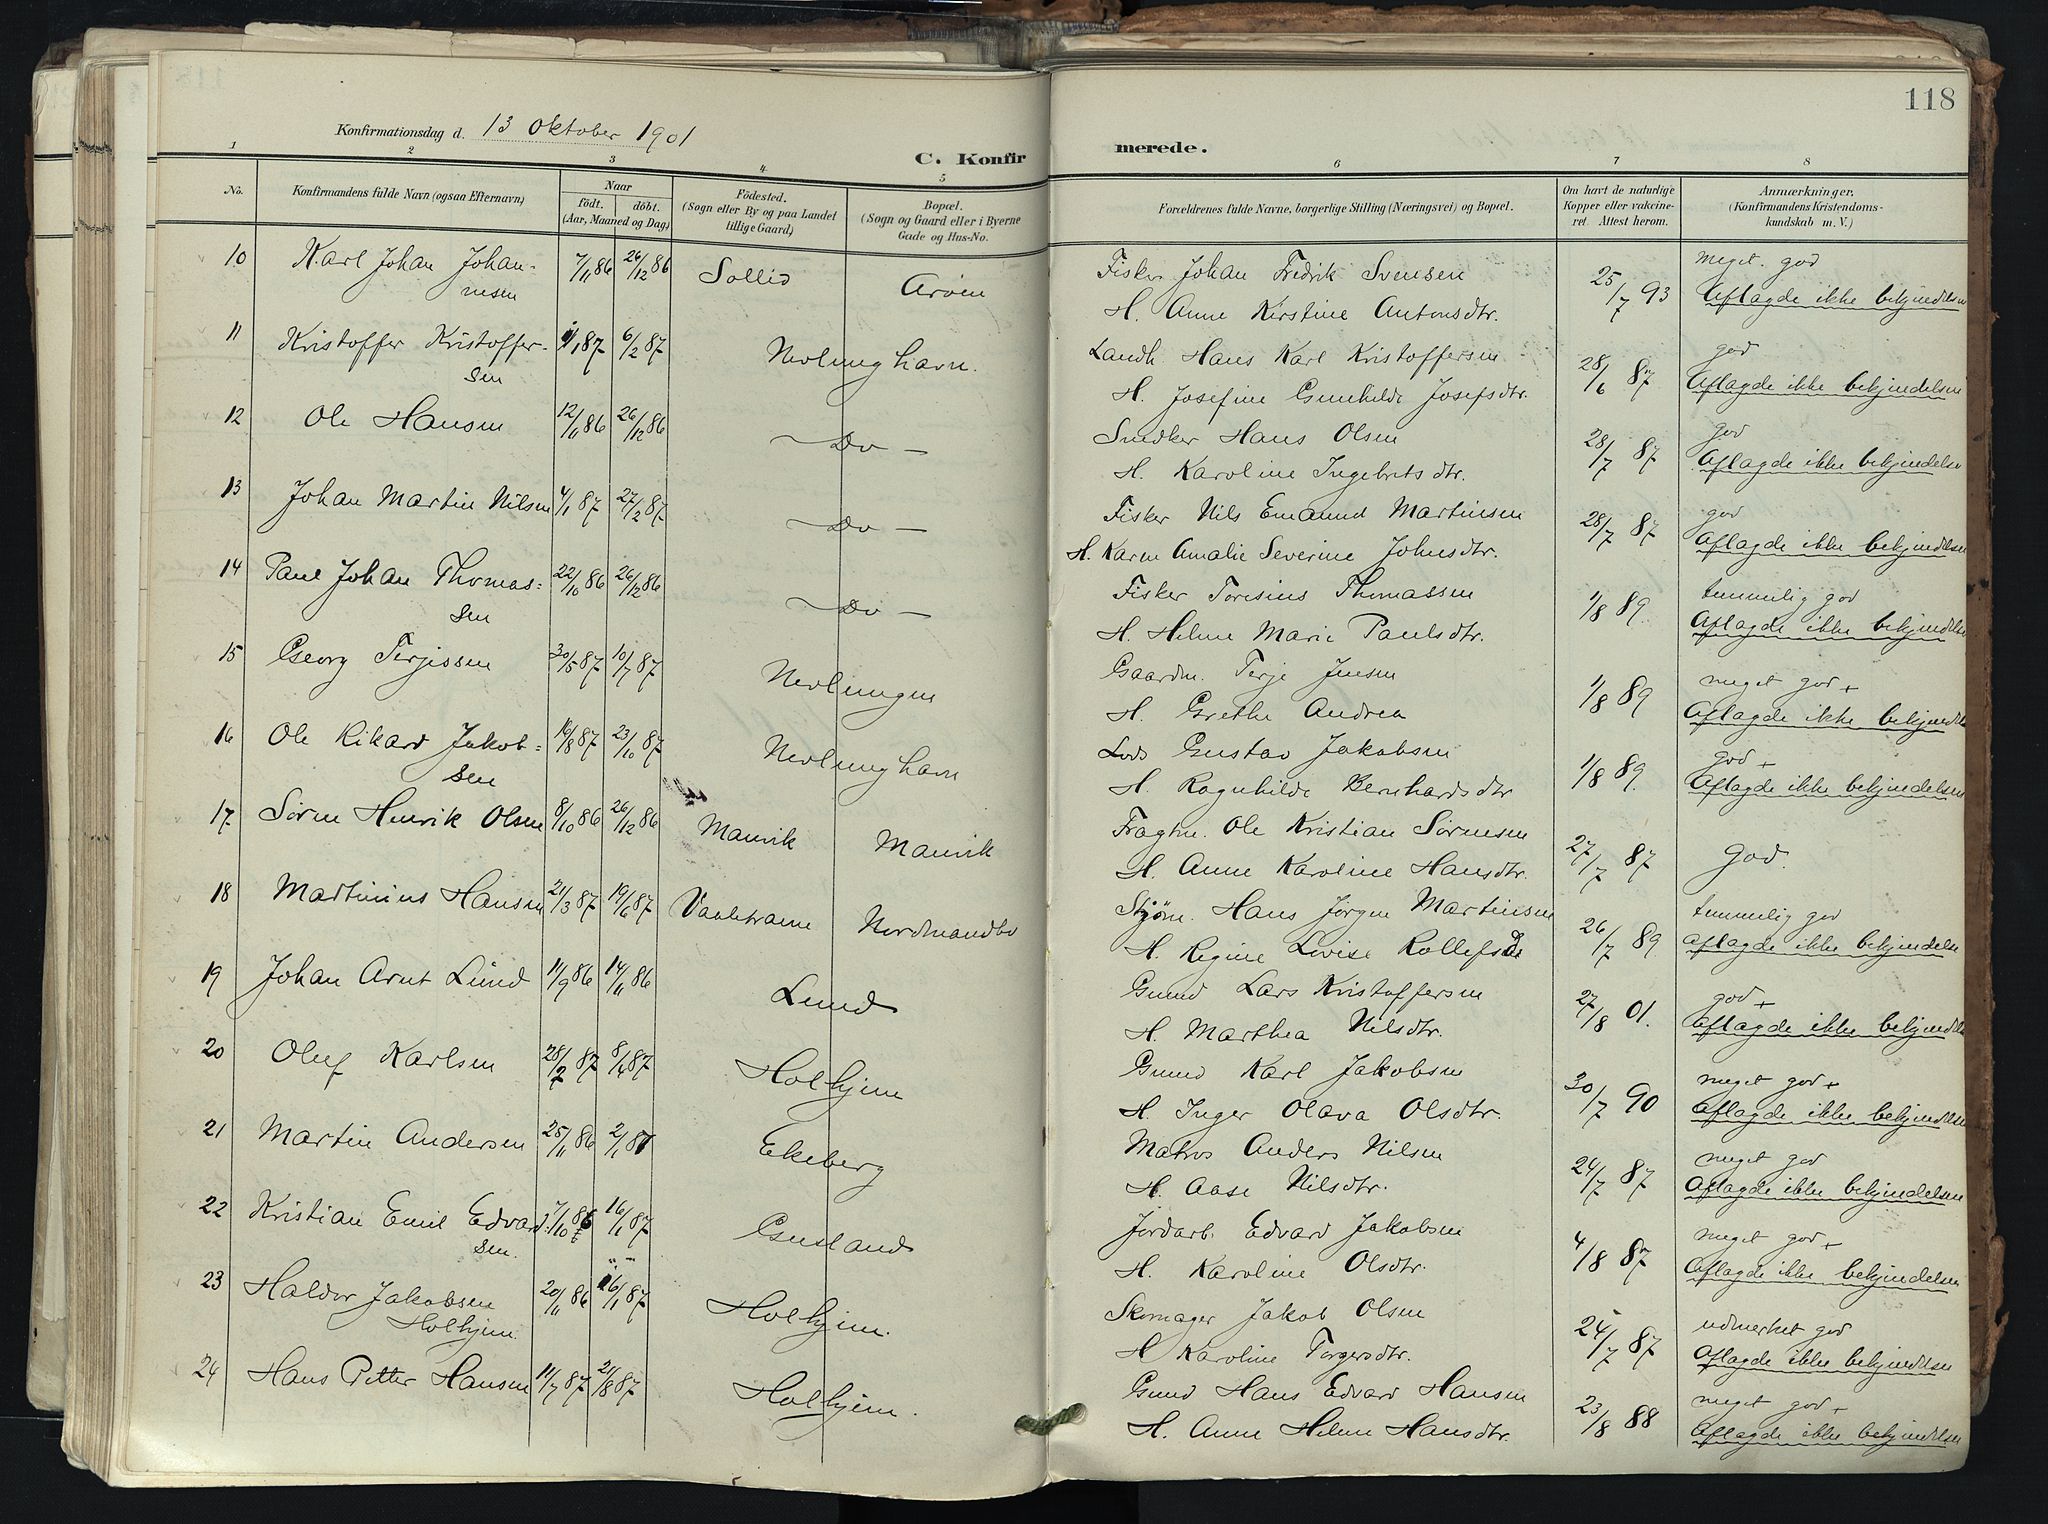 118
Konfirmationsdag d. 13 Oktober 1901
C. Konfir merede.
1 2 3 4 5 6 7 8
No. Konfirmandens fulde Navn (ogsaa Efternavn) Naar födt. döbt. (Aar, Maaned og Dag) Födested. (Sogn eller By og paa Landet tillige Gaard) Bopæl. (Sogn og Gaard eller i Byerne Gade og Hus-No. Forældrenes fulde Navne, borgerlige Stilling (Næringsvei) og Bopæl. Om havt de naturlige Kopper eller vakcineret. Attest herom. Anmærkninger, (Konfirmandens Kristendomskundskab m. V.)
10 Karl Johan Johan- 7/11 86 26/12 86 Sollid Arøen Fisker Johan Fredrik Svensen 25/7 93 meget god
nesen H. Anne Kirstine Antonsdtr. Aflagde ikke bekjendelsen
11 Kristoffer Kristoffer- 1/1 87 6/2 87 Nevlunghavn. Landh. Hans Karl Kristoffersen 28/6 87 god
sen H. Josefine Gunhilde Josefsdtr. Aflagde ikke bekjendelsen
12 Ole Hansen 12/11 86 26/12 86 Do Snedker Hans Olsen 28/7 87 god
H. Karoline Ingebretsdtr. Aflagde ikke bekjendelse
13 Johan Martin Nilsen 4/1 87 27/2 87 Do Fisker Nils Emanuel Martinsen 28/7 87 god
H. Karen Amalie Severine Johnsdtr. Aflagde ikke bekjendelsen
14 Paul Johan Thomas- 22/10 86 26/12 86 Do Fisker Torisius Thomassen 1/8 89. temmelig god
sen H. Helene Marie Paulsdtr. Aflagde ikke bekjendelse
15 Georg Terjessen 30/5 87 10/7 87 Nevlungen Gaardm. Terje Jensen 1/8 89 meget god +
H. Grethe Andrea Aflagde ikke bekjendelse
16 Ole Rikard Jakob- 16/8 87 23/10 87 Nevlunghavn Lods Gustav Jakobsen 1/8 89. god +
sen H. Ragnhilde Bernhardsdtr Aflagde ikke bekjendelsen
17 Søren Henrik Olsen 8/10 86 26/12 86 Manvik Manvik Fragtm. Ole Kristian Sørensen 27/7 87 God.
H. Anne Karoline Hansdtr.
18 Martinius Hansen 21/3 87 19/6 87 Nordmandbo Hans Jørgen Martinsen 26/7 89 temmelig god
H. Regine Lovise aflagde ikke bekjendelse
19 Johan Arnt Lund 11/9 86 14/11 86 Lund Gmnd Lars Kristoffersen 27/8 01. god +
H. Marthea Nilsdtr. Aflagde ikke bekjendelse
20 Oluf Karlsen 28/2 87 8/4 87 Holhjem Gmnd Karl Jakobsen 30/7 90 meget god +
H Inger Olava Olsdtr. Aflagde ikke bekjendelsen
21 Martin Andersen 25/11 86 2/1 87 Ekeberg Matros Anders Nilsen 24/7 87 meget god
H. Aase Nilsdtr. Aflagde ikke bekjendelsen
22 Kristian Emil Edvard- 7/10 86 16/1 87 Gusland Jordarb. Edvard Jakobsen 4/8 87 meget god +
sen. H. Karoline Olsdtr. Aflagde ikke bekjendelsen
23 Haldor Jakobsen 20/11 86 16/1 87 Holhjem. Skomager Jakob Olsen 24/7 87 udmerket god
Holhjem. H Karoline Torgersdtr. Aflagde ikke bekjendelsen
24 Hans Petter Hansen 11/7 87 21/8 87 Holhjem. Gmnd Hans Edvard Hansen 23/8 88 meget god +
H. Anne Helene Hansdtr. Aflagde ikke bekjendelsen